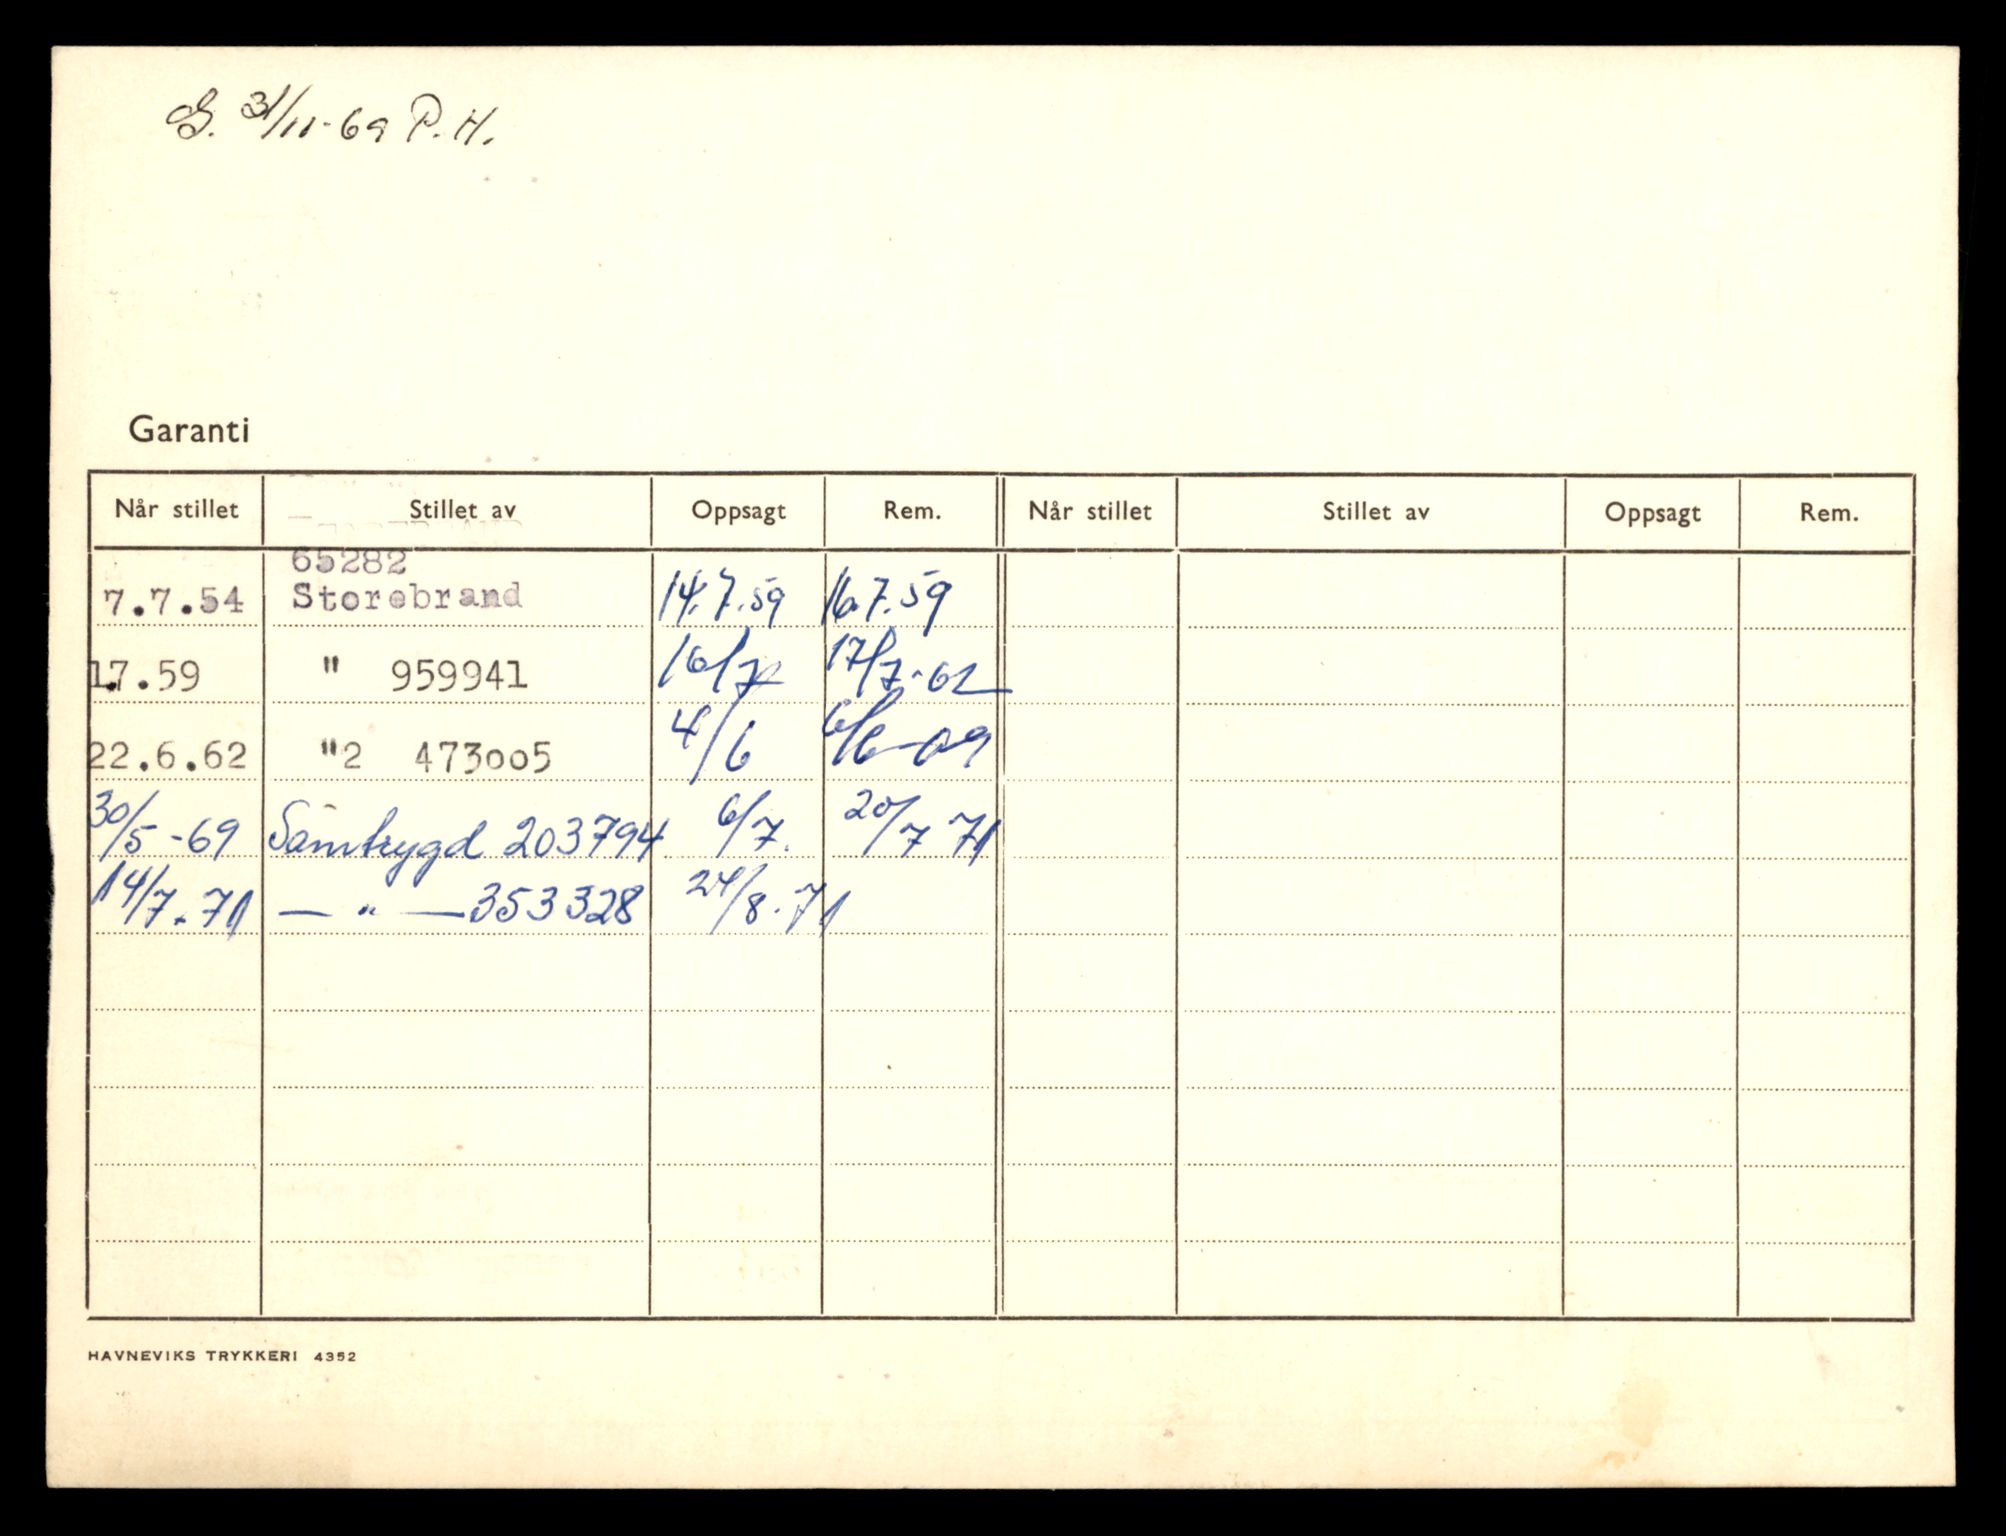 G. 31/11-69 P.H.
Garanti
Når stillet Stillet av Oppsagt Rem. Når stillet Stillet av Oppsagt Rem.
65282
7.7.54 Storebrand 14.7.59 16.7.59
1.7.59 " 959941 16/7 17/7-62
22.6.62 "2 473005 4/6 6/6-69
30/5-69 Samtrygd 203794 6/7. 20/7 71
14/7.71 — " — 353328 24/8.71
HAVNEVIKS TRYKKERI 4352